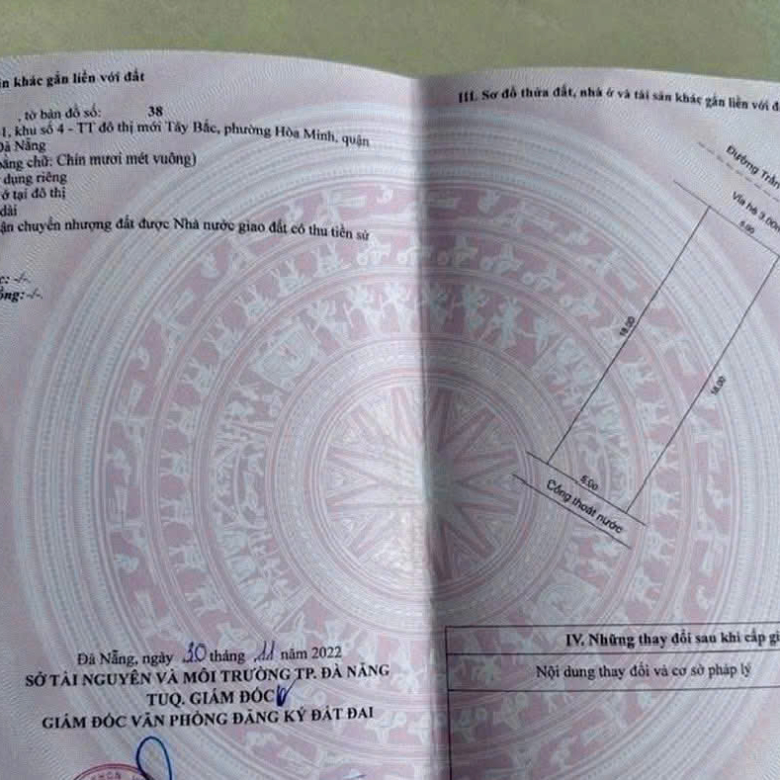 khác gắn liền với đất
, tờ bản đồ số: 38
1, khu số 4 - TT đô thị mới Tây Bắc, phường Hòa Minh, quận
Đà Nẵng
bằng chữ: Chín mươi mét vuông)
dụng riêng
ở tại đô thị
dài
chuyển nhượng đất được Nhà nước giao đất có thu tiền sử
-/-.
-/-.
Đà Nẵng, ngày 30 tháng 11 năm 2022
SỞ TÀI NGUYÊN VÀ MÔI TRƯỜNG TP. ĐÀ NẴNG
TUQ. GIÁM ĐỐC
GIÁM ĐỐC VĂN PHÒNG ĐĂNG KÝ ĐẤT ĐAI
III. Sơ đồ thửa đất, nhà ở và tài sản khác gắn liền với
Đường
Vỉa hè 3.00m
5.00
18.00
18.00
5.00
Cống thoát nước
IV. Những thay đổi sau khi cấp
Nội dung thay đổi và cơ sở pháp lý